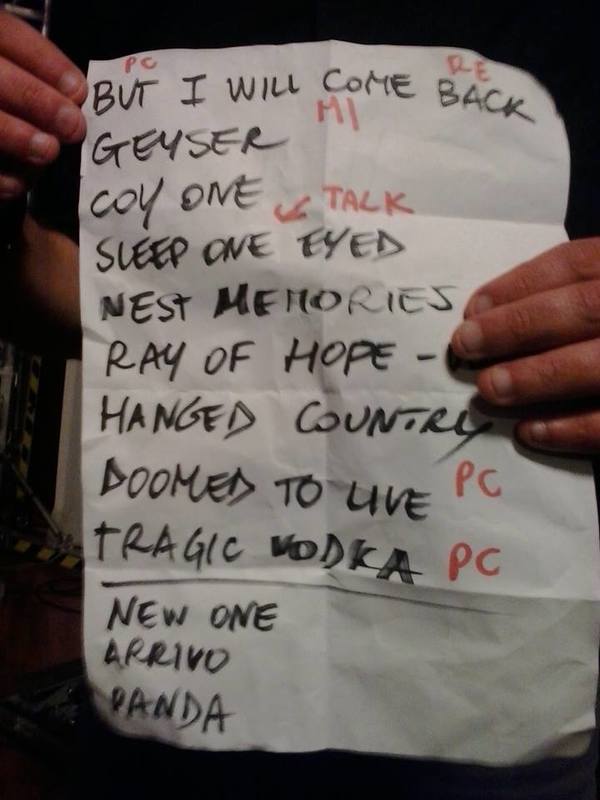 PC RE
BUT I WILL COME BACK
MI
GEYSER
COY ONE ↙ TALK
SLEEP ONE EYED
NEST MEMORIES
RAY OF HOPE -
HANGED COUNTRY
DOOMED TO LIVE PC
TRAGIC VODKA PC
NEW ONE
ARRIVO
PANDA